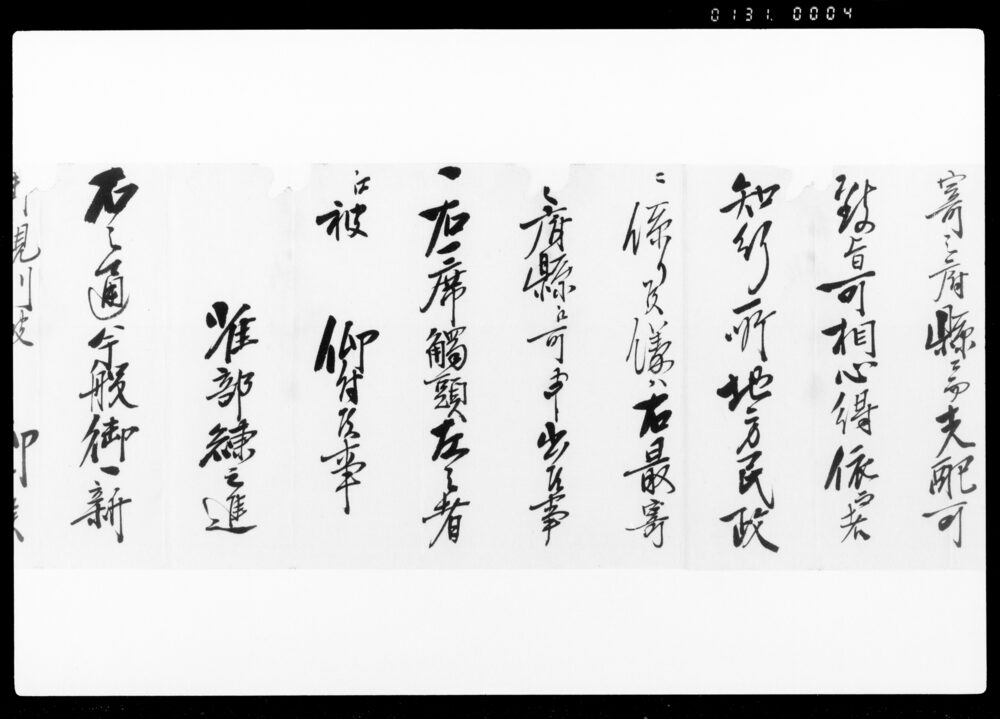 0131.0004
寄之府縣ニ而支配可
致旨可相心得依而者
知行所地方民政ニ
係り候儀ハ右最寄
之府縣江可申出候事
一右一席觸頭左之者
江被 仰付候事
雀部𫃠之進
右之通今般御一新